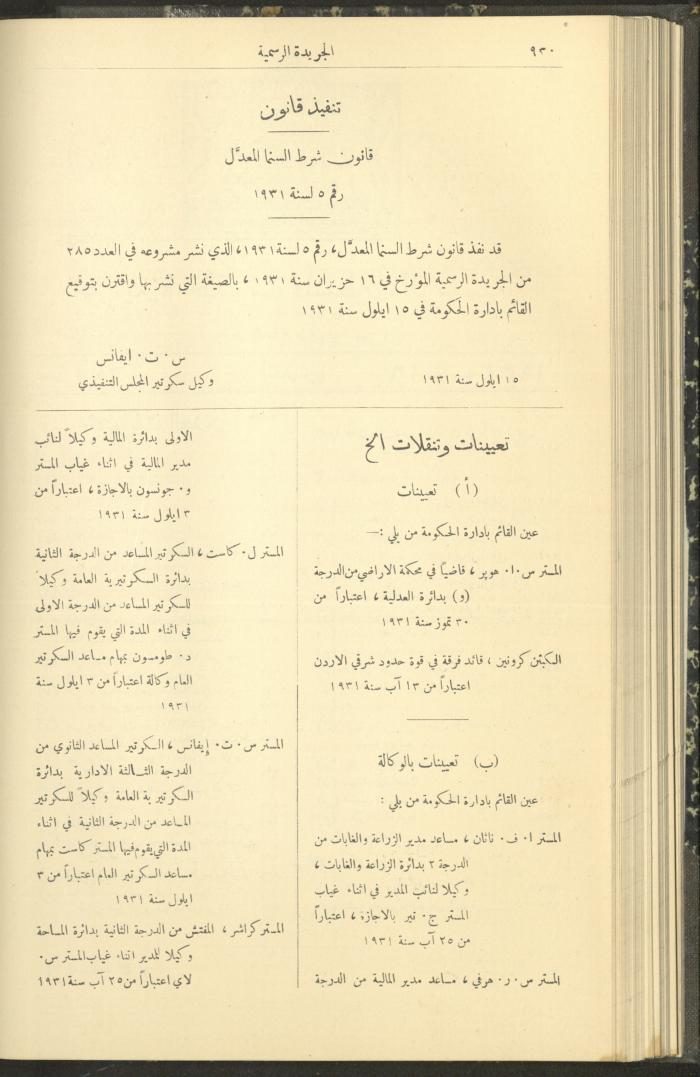 ٩٣٠
الجريدة الرسمية
تنفيذ قانون
قانون شرط السنما المعدَّل
رقم ٥ لسنة ١٩٣١
قد نفذ قانون شرط السنما المعدَّل، رقم ٥ لسنة ١٩٣١، الذي نشر مشروعه في العدد ٢٨٥
من الجريدة الرسمية المؤرخ في ١٦ حزيران سنة ١٩٣١، بالصيغة التي نشر بها واقترن بتوقيع
القائم بادارة الحكومة في ١٥ ايلول سنة ١٩٣١
س. ت. ايفانس
وكيل سكرتير المجلس التنفيذي
١٥ ايلول سنة ١٩٣١
تعيينات وتنقلات الخ
(أ) تعيينات
عين القائم بادارة الحكومة من يلي :—
المستر س. ا. هوپر، قاضيًا في محكمة الاراضي من الدرجة
(و) بدائرة العدلية، اعتباراً من
٣٠ تموز سنة ١٩٣١
الكبتن كرونين، قائد فرقة في قوة حدود شرقي الاردن
اعتباراً من ١٣ آب سنة ١٩٣١
(ب) تعيينات بالوكالة
عين القائم بادارة الحكومة من يلي :
المستر ا. ف. ناثان، مساعد مدير الزراعة والغابات من
الدرجة ٢ بدائرة الزراعة والغابات،
وكيلا لنائب المدير في اثناء غياب
المستر ج. تير بالاجازة، اعتباراً
من ٢٥ آب سنة ١٩٣١
المستر س. ر. هرفي، مساعد مدير المالية من الدرجة
الاولى بدائرة المالية وكيلاً لنائب
مدير المالية في اثناء غياب المستر
و. جونسون بالاجازة، اعتباراً من
٣ ايلول سنة ١٩٣١
المستر ل. كاست، السكرتير المساعد من الدرجة الثانية
بدائرة السكرتيرية العامة وكيلاً
للسكرتير المساعد من الدرجة الاولى
في اثناء المدة التي يقوم فيها المستر
د. طومسون بمهام مساعد السكرتير
العام وكالة اعتباراً من ٣ ايلول سنة
١٩٣١
المستر س. ت. إيفانس، السكرتير المساعد الثانوي من
الدرجة الثالثة الادارية بدائرة
السكرتيرية العامة وكيلاً للسكرتير
المساعد من الدرجة الثانية في اثناء
المدة التي يقوم فيها المستر كاست بمهام
مساعد السكرتير العام اعتباراً من ٣
ايلول سنة ١٩٣١
المستر كراشر، المفتش من الدرجة الثانية بدائرة المساحة
وكيلا للمدير اثناء غياب المستر س.
لاي اعتباراً من ٢٥ آب سنة ١٩٣١